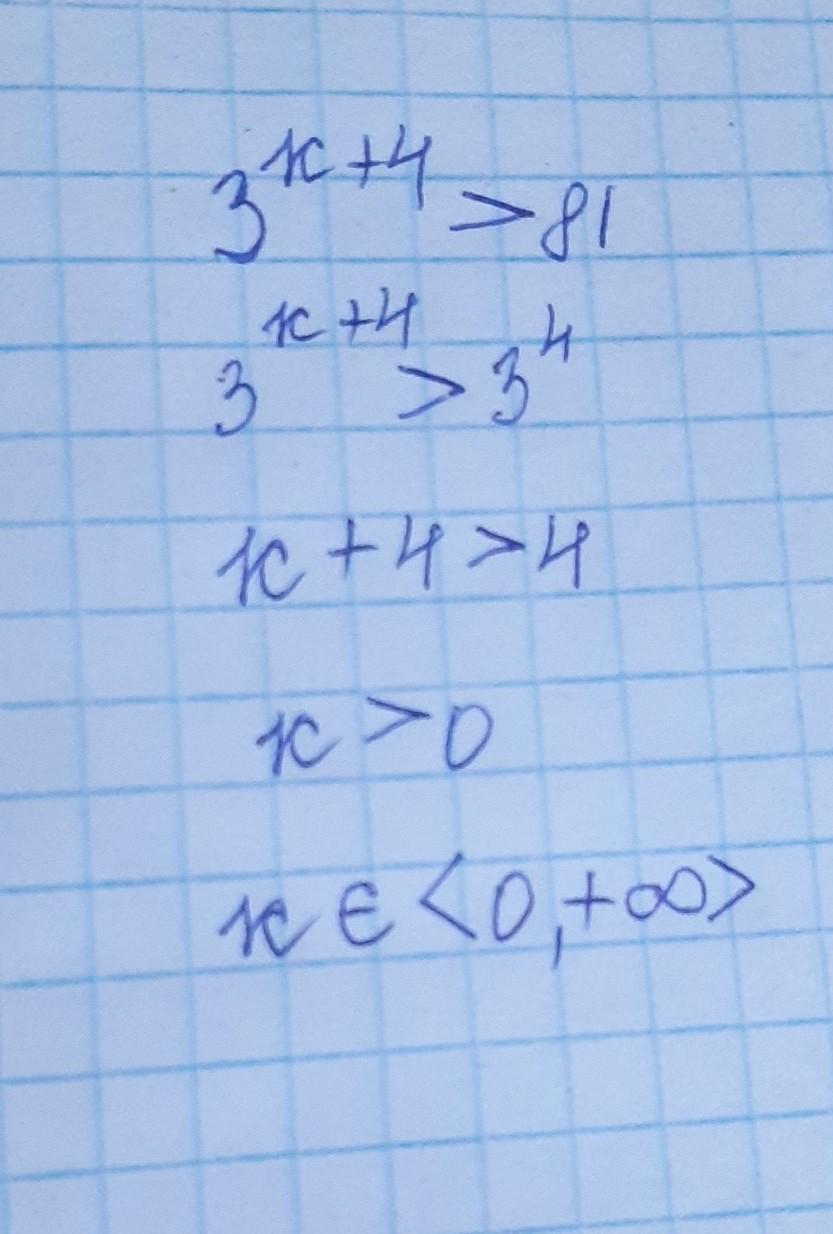 3^{x+4} > 81
3^{x+4} > 3^4
x + 4 > 4
x > 0
x ∈ <0, +∞>